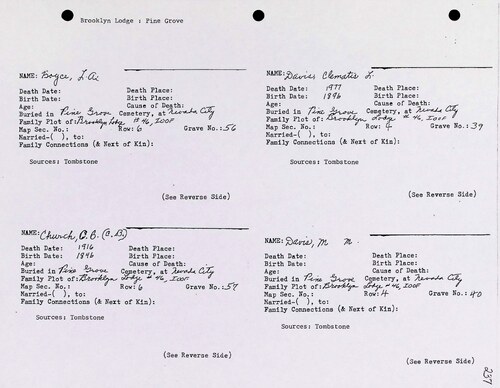 Brooklyn Lodge : Pine Grove
NAME: Boyce, L A.
Death Date: Death Place:
Birth Date: Birth Place:
Age: Cause of Death:
Buried in Pine Grove Cemetery, at Nevada City
Family Plot of: Brooklyn Lodge # 46, IOOF
Map Sec. No.: Row: 6 Grave No.: 56
Married-( ), to:
Family Connections (& Next of Kin):
Sources: Tombstone
(See Reverse Side)
NAME: Davies Clematis L.
Death Date: 1977 Death Place:
Birth Date: 1896 Birth Place:
Age: Cause of Death:
Buried in Pine Grove Cemetery, at Nevada City
Family Plot of: Brooklyn Lodge # 46, IOOF
Map Sec. No.: Row: 4 Grave No.: 39
Married-( ), to:
Family Connections (& Next of Kin):
Sources: Tombstone
(See Reverse Side)
NAME: Church, O. B. (C. B.)
Death Date: 1916 Death Place:
Birth Date: 1846 Birth Place:
Age: Cause of Death:
Buried in Pine Grove Cemetery, at Nevada City
Family Plot of: Brooklyn Lodge # 46, IOOF
Map Sec. No.: Row: 6 Grave No.: 57
Married-( ), to:
Family Connections (& Next of Kin):
Sources: Tombstone
(See Reverse Side)
NAME: Davis, M M.
Death Date: Death Place:
Birth Date: Birth Place:
Age: Cause of Death:
Buried in Pine Grove Cemetery, at Nevada City
Family Plot of: Brooklyn Lodge # 46, IOOF
Map Sec. No.: Row: 4 Grave No.: 40
Married-( ), to:
Family Connections (& Next of Kin):
Sources: Tombstone
(See Reverse Side)
237